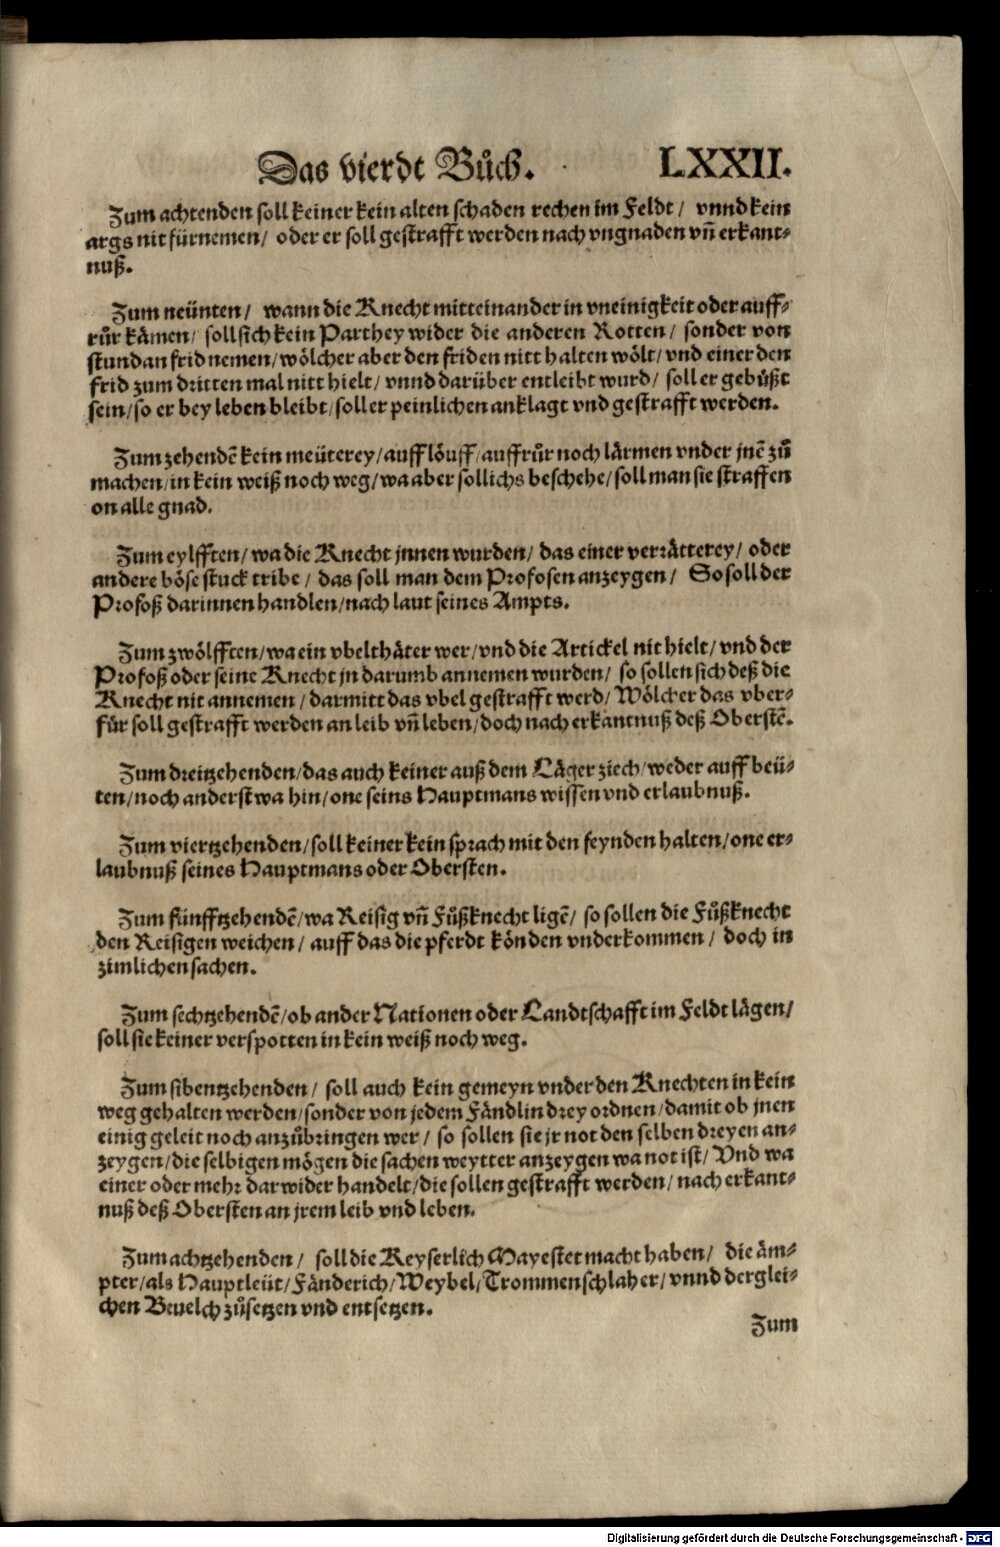 Das vierdt Bůch. LXXII.
Zum achtenden soll keiner kein alten schaden rechen im Feldt / vnnd kein
args nit fürnemen / oder er soll gestrafft werden nach vngnaden vñ erkant⸗
nuß.
Zum neünten / wann die Knecht mitteinander in vneinigkeit oder auff⸗
růr kämen / soll sich kein Parthey wider die anderen Rotten / sonder von
stund an frid nemen / wölcher aber den friden nitt halten wölt / vnd einer den
frid zum dritten mal nitt hielt / vnnd darüber entleibt wurd / soll er gebůßt
sein / so er bey leben bleibt / soll er peinlichen anklagt vnd gestrafft werden.
Zum zehendẽ kein meüterey / aufflöuff / auffrůr noch lärmen vnder jnẽ zů
machen / in kein weiß noch weg / wa aber sollichs beschehe / soll man sie straffen
on alle gnad.
Zum eylfften / wa die Knecht jnnen wurden / das einer verrätterey / oder
andere böse stuck tribe / das soll man dem Profosen anzeygen / So soll der
Profoß darinnen handlen / nach laut seines Ampts.
Zum zwölfften / wa ein vbelthäter wer / vnd die Artickel nit hielt / vnd der
Profoß oder seine Knecht jn darumb annemen wurden / so sollen sich deß die
Knecht nit annemen / darmitt das vbel gestrafft werd / Wölcher das vber⸗
für soll gestrafft werden an leib vñ leben / doch nach erkantnuß deß Oberstẽ.
Zum dreitzehenden / das auch keiner auß dem Läger ziech / weder auff beü⸗
ten / noch anderstwa hin / one seins Hauptmans wissen vnd erlaubnuß.
Zum viertzehenden / soll keiner kein sprach mit den feynden halten / one er⸗
laubnuß seines Hauptmans oder Obersten.
Zum fünfftzehendẽ / wa Reisig vñ Fůßknecht ligẽ / so sollen die Fůßknecht
den Reisigen weichen / auff das die pferdt könden vnderkommen / doch in
zimlichen sachen.
Zum sechtzehendẽ / ob ander Nationen oder Landtschafft im Feldt lägen /
soll sie keiner verspotten in kein weiß noch weg.
Zum sibentzehenden / soll auch kein gemeyn vnder den Knechten in kein
weg gehalten werden / sonder von jedem Fändlin drey ordnen / damit ob jnen
einig geleit noch anzůbringen wer / so sollen sie jr not den selben dreyen an⸗
zeygen / die selbigen mögen die sachen weytter anzeygen wa not ist / Vnd wa
einer oder mehr darwider handelt / die sollen gestrafft werden / nach erkant⸗
nuß deß Obersten an jrem leib vnd leben.
Zum achtzehenden / soll die Keyserlich Mayestet macht haben / die äm⸗
pter / als Hauptleüt / Fänderich / Weybel / Trommenschlaher / vnnd derglei⸗
chen Beuelch zůsetzen vnd entsetzen.
Zum
Digitalisierung gefördert durch die Deutsche Forschungsgemeinschaft - DFG